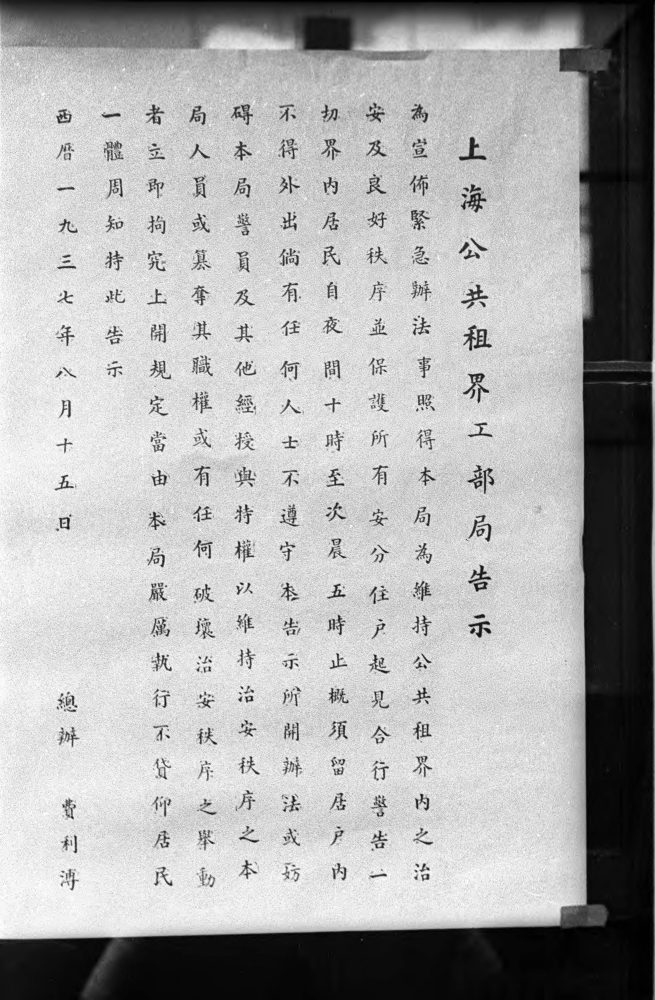 上海公共租界工部局告示
為宣佈緊急辦法事照得本局為維持公共租界內之治
安及良好秩序並保護所有安分住戶起見合行警告一
切界內居民自夜間十時至次晨五時止概須留居戶內
不得外出倘有任何人士不遵守本告示所開辦法或妨
碍本局警員及其他經授與特權以維持治安秩序之本
局人員或篡奪其職權或有任何破壞治安秩序之舉動
者立即拘究上開規定當由本局嚴厲執行不貸仰居民
一體周知持此告示
西曆一九三七年八月十五日
總辦 費利溥